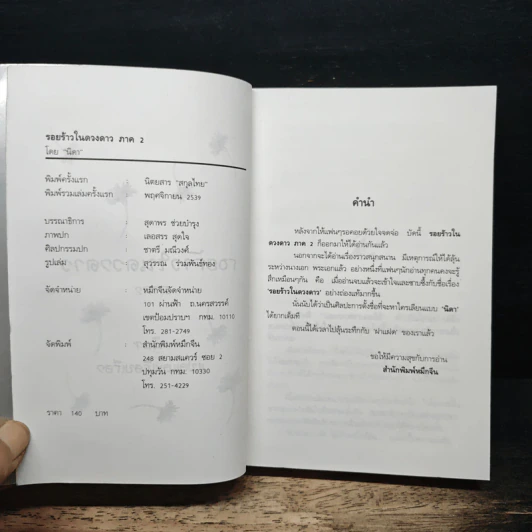 รอยร้าวในดวงดาว ภาค 2
โดย "นิดา"
พิมพ์ครั้งแรก : นิตยสาร "สกุลไทย"
พิมพ์รวมเล่มครั้งแรก : พฤศจิกายน 2539
บรรณาธิการ : สุดาพร ช่วยบำรุง
ภาพปก : เลอสรร สุดใจ
ศิลปกรรมปก : ชาตรี มณีวงศ์
รูปเล่ม : สุวรรณ ร่วมพันธ์ทอง
จัดจำหน่าย : หมึกจีนจัดจำหน่าย
101 ผ่านฟ้า ถ.นครสวรรค์
เขตป้อมปราบฯ กทม. 10110
โทร. 281-2749
จัดพิมพ์ : สำนักพิมพ์หมึกจีน
248 สยามสแควร์ ซอย 2
ปทุมวัน กทม. 10330
โทร. 251-4229
ราคา 140 บาท
คำนำ
หลังจากให้แฟนๆรอคอยด้วยใจจดจ่อ บัดนี้ รอยร้าวใน
ดวงดาว ภาค 2 ก็ออกมาให้ได้อ่านกันแล้ว
นอกจากจะได้อ่านเรื่องราวสนุกสนาน มีเหตุการณ์ให้ได้ลุ้น
ระหว่างนางเอก พระเอกแล้ว อย่างหนึ่งที่แฟนๆนักอ่านทุกคนคงจะรู้
สึกเหมือนๆกัน คือ เมื่ออ่านจบแล้วจะเข้าใจและซาบซึ้งกับชื่อเรื่อง
'รอยร้าวในดวงดาว' อย่างถ่องแท้มากขึ้น
นั่นนับได้ว่าเป็นศิลปะการตั้งชื่อที่จะหาใครเลียนแบบ 'นิดา'
ได้ยากเต็มที
ตอนนี้ได้เวลาไปลุ้นระทึกกับ ฝาแฝด ของเราแล้ว
ขอให้มีความสุขกับการอ่าน
สำนักพิมพ์หมึกจีน